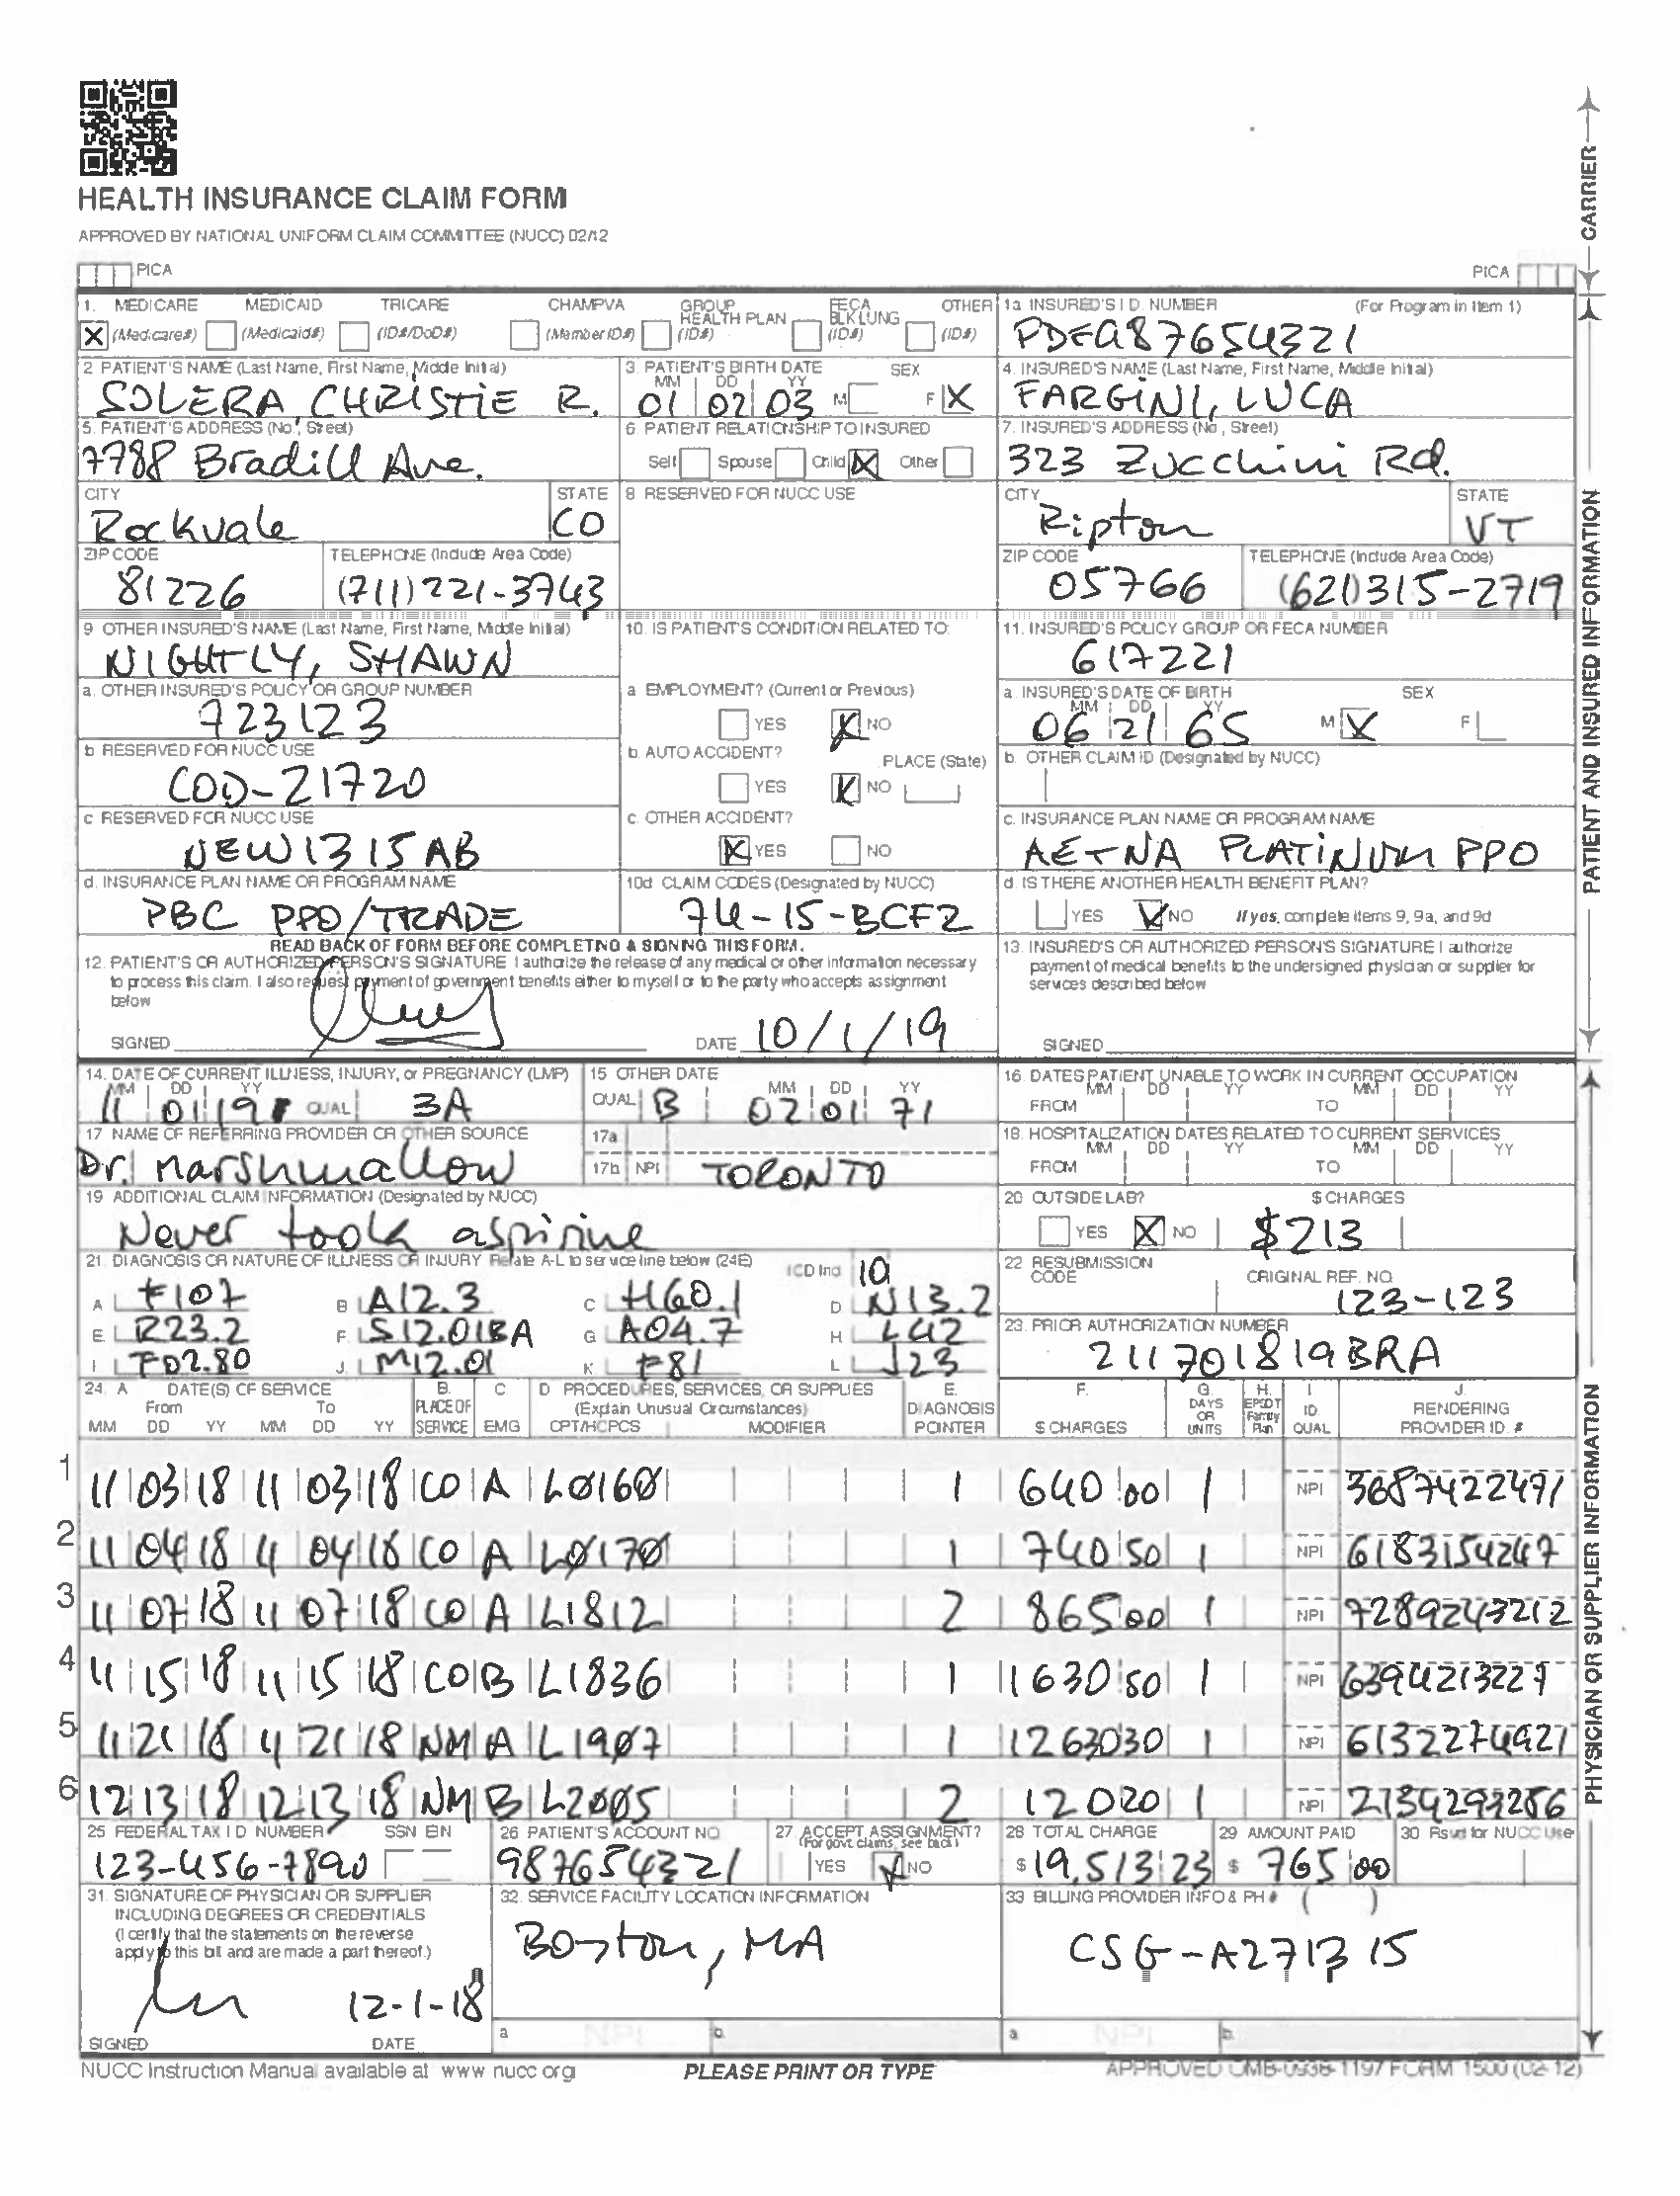 HEALTH INSURANCE CLAIM FORM
APPROVED BY NATIONAL UNIFORM CLAIM COMMITTEE (NUCC) 02/12
PICA PICA
CARRIER
1. MEDICARE MEDICAID TRICARE CHAMPVA GROUP HEALTH PLAN FECA BLK LUNG OTHER
X (Medicare#) (Medicaid#) (ID#/DoD#) (Member ID#) (ID#) (ID#) (ID#)
1a INSURED'S I D NUMBER (For Program in Item 1)
PDFA87654321
2 PATIENT'S NAME (Last Name, First Name, Middle Initial)
SOLERA, CHRISTIE R.
3. PATIENT'S BIRTH DATE SEX
MM DD YY
01 02 03 M F X
4. INSURED'S NAME (Last Name, First Name, Middle Initial)
FARGINI, LUCA
5. PATIENT'S ADDRESS (No, Street)
7788 Bradill Ave.
6 PATIENT RELATIONSHIP TO INSURED
Self Spouse Child X Other
7. INSURED'S ADDRESS (No, Street)
323 Zucchini Rd.
CITY STATE
Rockvale CO
8 RESERVED FOR NUCC USE
CITY STATE
Ripton VT
ZIP CODE TELEPHONE (Include Area Code)
81226 (711) 221-3743
ZIP CODE TELEPHONE (Include Area Code)
05766 (621) 315-2719
9 OTHER INSURED'S NAME (Last Name, First Name, Middle Initial)
NIGHTLY, SHAWN
10. IS PATIENT'S CONDITION RELATED TO:
11. INSURED'S POLICY GROUP OR FECA NUMBER
617221
a. OTHER INSURED'S POLICY OR GROUP NUMBER
723123
a EMPLOYMENT? (Current or Previous)
YES X NO
a. INSURED'S DATE OF BIRTH SEX
MM DD YY
06 21 65 M X F
b RESERVED FOR NUCC USE
COD-21720
b. AUTO ACCIDENT? PLACE (State)
YES X NO
b. OTHER CLAIM ID (Designated by NUCC)
c RESERVED FOR NUCC USE
NEW1315AB
c. OTHER ACCIDENT?
X YES NO
c. INSURANCE PLAN NAME OR PROGRAM NAME
AETNA PLATINUM PPO
d. INSURANCE PLAN NAME OR PROGRAM NAME
PBC PPO/TRADE
10d CLAIM CODES (Designated by NUCC)
74-15-BCF2
d. IS THERE ANOTHER HEALTH BENEFIT PLAN?
YES X NO If yes, complete items 9, 9a, and 9d
READ BACK OF FORM BEFORE COMPLETING & SIGNING THIS FORM.
12. PATIENT'S OR AUTHORIZED PERSON'S SIGNATURE I authorize the release of any medical or other information necessary
to process this claim. I also request payment of government benefits either to myself or to the party who accepts assignment
below
SIGNED DATE 10/1/19
13. INSURED'S OR AUTHORIZED PERSON'S SIGNATURE I authorize
payment of medical benefits to the undersigned physician or supplier for
services described below
SIGNED
PATIENT AND INSURED INFORMATION
14. DATE OF CURRENT ILLNESS, INJURY, or PREGNANCY (LMP)
MM DD YY
11 01 19 QUAL 3A
15 OTHER DATE
MM DD YY
QUAL B 02 01 71
16 DATES PATIENT UNABLE TO WORK IN CURRENT OCCUPATION
MM DD YY MM DD YY
FROM TO
17 NAME OF REFERRING PROVIDER OR OTHER SOURCE
Dr. Marshmallow
17a
17b NPI TORONTO
18. HOSPITALIZATION DATES RELATED TO CURRENT SERVICES
MM DD YY MM DD YY
FROM TO
19 ADDITIONAL CLAIM INFORMATION (Designated by NUCC)
Never took aspirine
20 OUTSIDE LAB? $ CHARGES
YES X NO $213
21. DIAGNOSIS OR NATURE OF ILLNESS OR INJURY Relate A-L to service line below (24E) ICD Ind 10
A F107 B A12.3 C H60.1 D N13.2
E R23.2 F S12.01BA G A04.7 H L42
I F02.80 J M12.01 K F81 L J23
22 RESUBMISSION CODE ORIGINAL REF. NO.
123-123
23. PRIOR AUTHORIZATION NUMBER
211701819BRA
24. A DATE(S) OF SERVICE B. C. D PROCEDURES, SERVICES, OR SUPPLIES E. F. G. H. I. J.
From To PLACE OF (Explain Unusual Circumstances) DIAGNOSIS DAYS OR EPSDT Family ID. RENDERING
MM DD YY MM DD YY SERVICE EMG CPT/HCPCS MODIFIER POINTER $ CHARGES UNITS Plan QUAL PROVIDER ID. #
1 11 03 18 11 03 18 CO A L0160 1 640 00 1 NPI 3687422471
2 11 04 18 11 04 18 CO A L0170 1 740 50 1 NPI 6183154247
3 11 07 18 11 07 18 CO A L1812 2 865 00 1 NPI 7289243212
4 11 15 18 11 15 18 CO B L1836 1 1630 50 1 NPI 6394213227
5 11 21 18 11 21 18 NM A L1907 1 12630 30 1 NPI 6132274921
6 12 13 18 12 13 18 NM B L2005 2 120 20 1 NPI
25 FEDERAL TAX I D NUMBER SSN EIN
123-456-7890
26 PATIENT'S ACCOUNT NO.
987654321
27 ACCEPT ASSIGNMENT?
(For govt claims, see back)
YES X NO
28 TOTAL CHARGE
$ 19,513 23
29 AMOUNT PAID
$ 765 00
30 Rsvd for NUCC Use
31. SIGNATURE OF PHYSICIAN OR SUPPLIER
INCLUDING DEGREES OR CREDENTIALS
(I certify that the statements on the reverse
apply to this bill and are made a part thereof.)
12-1-18
SIGNED DATE
32. SERVICE FACILITY LOCATION INFORMATION
Boston, MA
a NPI b.
33 BILLING PROVIDER INFO & PH # ( )
CSG-A271315
a NPI b.
PHYSICIAN OR SUPPLIER INFORMATION
NUCC Instruction Manual available at www nucc org
PLEASE PRINT OR TYPE
APPROVED OMB-0938-1197 FORM 1500 (02-12)